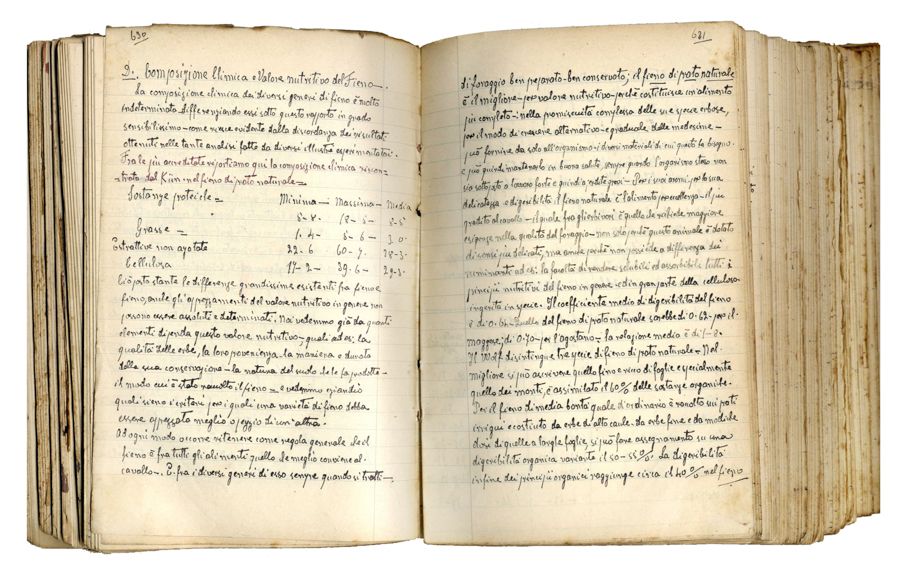 630
D. Composizione Chimica e Valore nutritivo del Fieno —
La composizione chimica dei diversi generi di fieno è molto
indeterminata differenziando essi sotto questo rapporto in grado
sensibilissimo — come riesce evidente dalla discordanza dei risultati
ottenuti nelle tante analisi fatte da diversi illustri esperimentatori.
Fra le più accreditate riportiamo qui la composizione chimica riscon-
-trata dal Kün nel fieno di prato naturale =
Sostanze proteiche = Minima — Massima — Media
Grasse =
Estrattive non azotate 22-6 60-7-
Cellulosa 39-6-
Ciò posto stante le differenze grandissime esistenti fra fieno e
fieno, anche gli apprezzamenti del valore nutritivo in genere non
possono essere assoluti e determinati. Noi vedemmo già da quanti
elementi dipenda questo valore nutritivo — quali ad es: la
qualità delle erbe, la loro provenienza, la maniera e durata
della sua conservazione — la natura del suolo che le fa prodotte —
il modo cui è stato raccolto il fieno = e vedemmo eziandio
quali sieno i criteri per i quali una varietà di fieno debba
essere apprezzata meglio o peggio di un'altra.
Ad ogni modo occorre ritenere come regola generale che il
fieno è fra tutti gli alimenti quello che meglio conviene al
cavallo —. E fra i diversi generi di esso sempre quando si tratti —
631
di foraggio ben preparato — ben conservato; il fieno di prato naturale
è il migliore — per valore nutritivo — perchè costituisce un alimento
più completo — nella promiscuità complessa delle sue specie erbose,
per il modo di crescere alternativo e graduale delle medesime —
può fornire da solo all'organismo i diversi materiali di cui questo ha bisogno —
e può quindi mantenerlo in buona salute, sempre quando l'organismo stesso non
sia sottoposto a lavoro forte e quindi a perdite gravi — Per i suoi aromi, per la sua
delicatezza e digeribilità il fieno naturale è l'alimento per eccellenza — il più
gradito al cavallo — il quale fra gli erbivori è quello che richiede maggiore
esigenze nella qualità del foraggio — non solo perchè questo animale è dotato
di sensi più delicati, ma anche perchè non possiede a differenza dei
ruminanti ad es: la facoltà di rendere solubili ed assorbibili tutti i
principii nutritivi del fieno in genere ed in gran parte della cellulosa
ingerita in specie. Il coefficiente medio di digeribilità del fieno
è di 0.62 — quello del fieno di prato naturale sarebbe di 0-62 — per il
maggese; di 0-70 — per l'agostano — la relazione media è di
Il Wolf distingue tre specie di fieno di prato naturale — Nel
migliore si può ascrivere quello fino e ricco di foglie e specialmente
quello dei monti, è assimilato il 60% delle sostanze organiche.
Per il fieno di media bontà quale d'ordinario è raccolto sui prati
irrigui e costituito da erbe di alto caule — da erbe fine e da modiche
dosi di quelle a larghe foglie, si può fare assegnamento su una
digeribilità organica variante il 50-55%. La digeribilità
infine dei principii organici raggiunge circa il 40% nel fieno